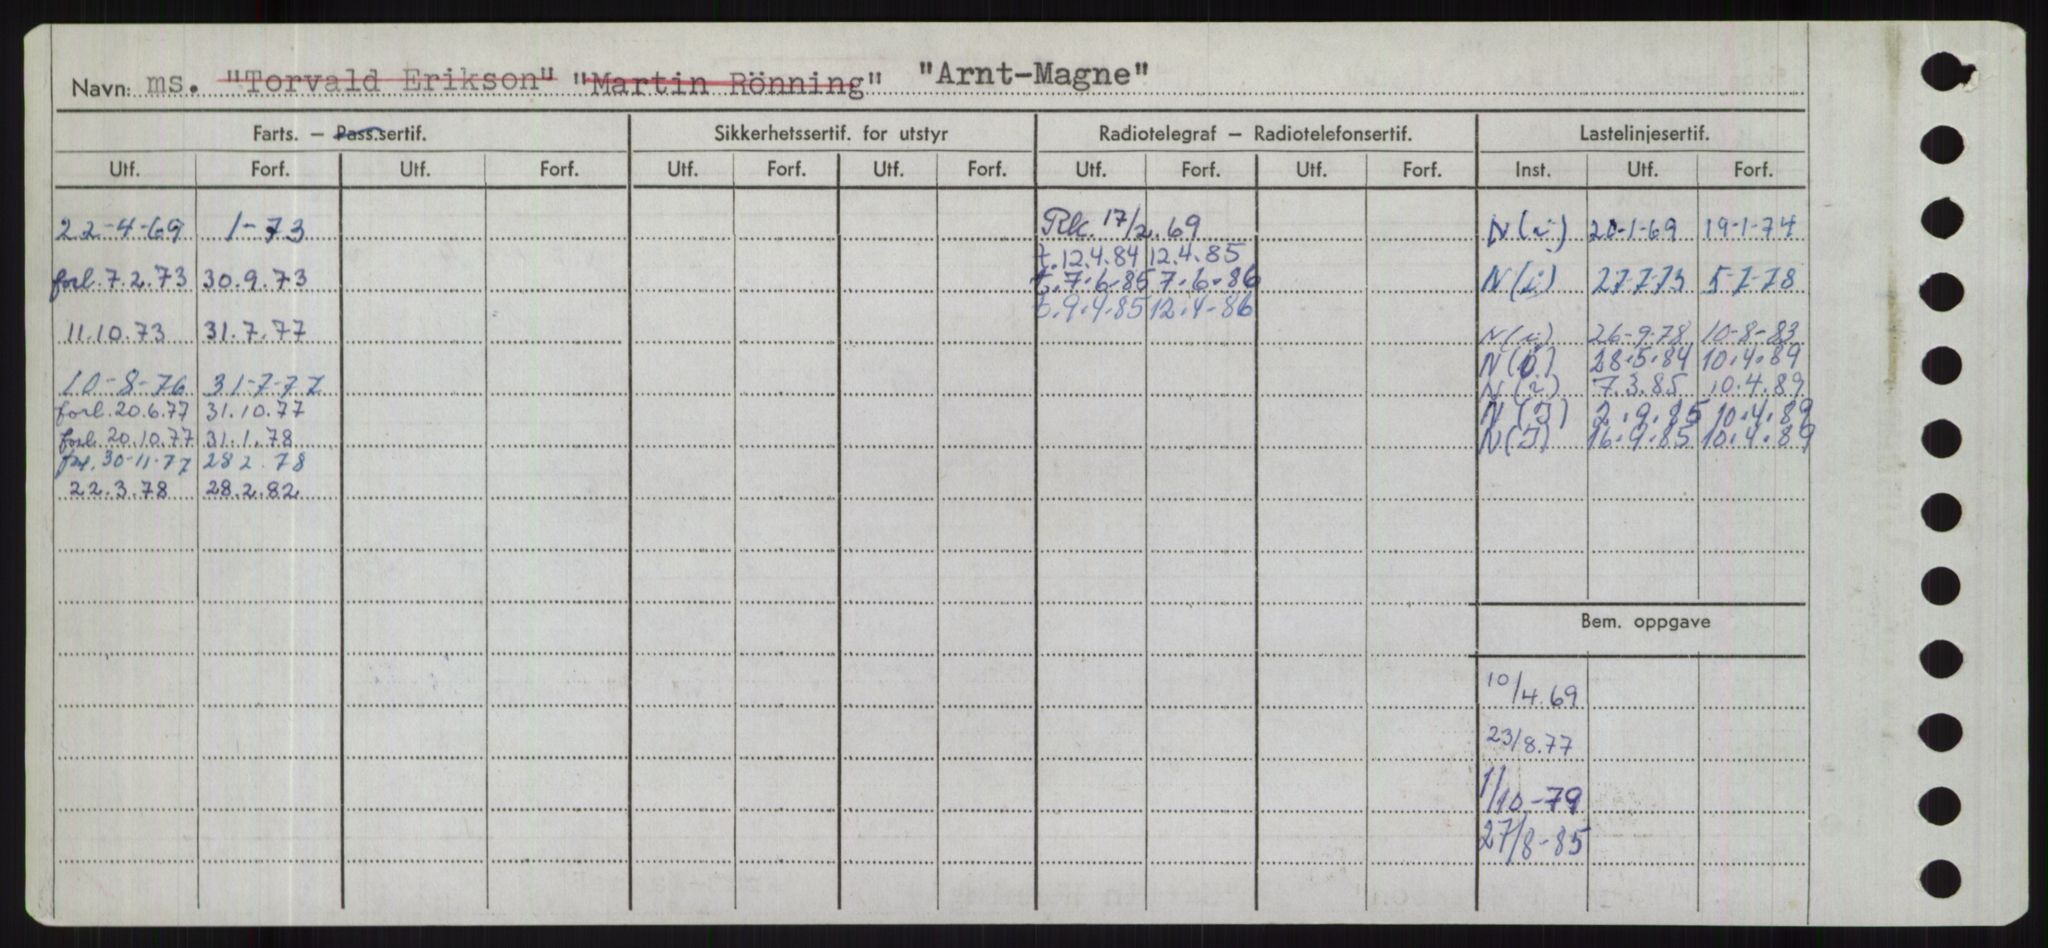 Navn: ms. "Torvald Erikson" "Martin Rönning" "Arnt-Magne"
Farts. – Pass.sertif. Sikkerhetssertif. for utstyr Radiotelegraf – Radiotelefonsertif. Lastelinjesertif.
Utf. Forf. Utf. Forf. Utf. Forf. Utf. Forf. Utf. Forf. Utf. Forf. Inst. Utf. Forf.
22-4-69 1-73 17/2.69 N(i) 20-1-69 19-1-74
t.12.4.84 12.4.85
forl.7.2.73 30.9.73 t.7.6.85 7.6.86 N(i) 27-7-73 5-7-78
t.9.4.85 12.4.86
11.10.73 31.7.77 N(i) 26-9-78 10-8-83
N(i) 28.5.84 10.4.89
10-8-76 31-7-77 N(i) 7.3.85 10.4.89
forl.20.6.77 31.10.77 N(I) 2.9.85 10.4.89
forl.20.10.77 31.1.78 N(I) 16.9.85 10.4.89
forl.30-11-77 28 2.78
22.3.78 28.2.82
Bem. oppgave
10/4.69
23/8.77
1/10-79
27/8-85